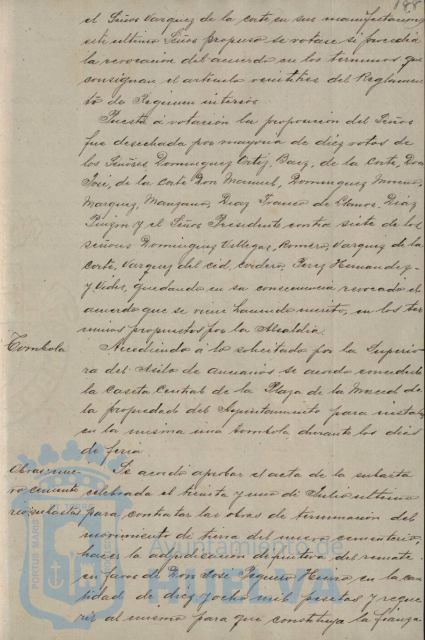 188
el Señor Vazquez de la Corte en sus manifestaciones
este ultimo Señor propuso se votase si procedia
la revocacion del acuerdo en los terminos que
consignan el articulo veintitres del Reglamen-
to de Regimen interior.
Puesta á votación la proposicion del Señor
fue desechada por mayoria de diez votos de
los Señores Dominguez Ortiz, Baez, de la Corte Don
José, de la Corte Don Manuel, Dominguez Moreno,
Marquez, Manzano, Diaz Franco de Llanos, Diaz
Pinzon y el Señor Presidente contra siete de los
señores Dominguez Villegas, Romero, Vazquez de la
Corte, Vazquez del Cid, Cordero, Perez Hernandez
y Vides, quedando en su consecuencia revocado el
acuerdo que se viene haciendo merito, en los ter-
minos propuestos por la Alcaldia.
Tombola
Accediendo á lo solicitado por la Superio-
ra del Asilo de ancianos se acordo concederle
la Caseta Central de la Plaza de la Merced de
la propiedad del Ayuntamiento para instalar
en la misma una tombola durante los dias
de feria.
Obras nue-
vo cemente
rio; subasta
Se acordó aprobar el acta de la subasta
celebrada el treinta y uno de Julio ultimo
para contratar las obras de terminacion del
movimiento de tierra del nuevo cementerio,
hacer la adjudicacion definitiva del remate
en favor de Don José Peguero Hierro en la can-
tidad de diez y ocho mil pesetas y reque-
rir al mismo para que constituya la fianza
PORTUS MARIS
Ayuntamiento de
HUELVA